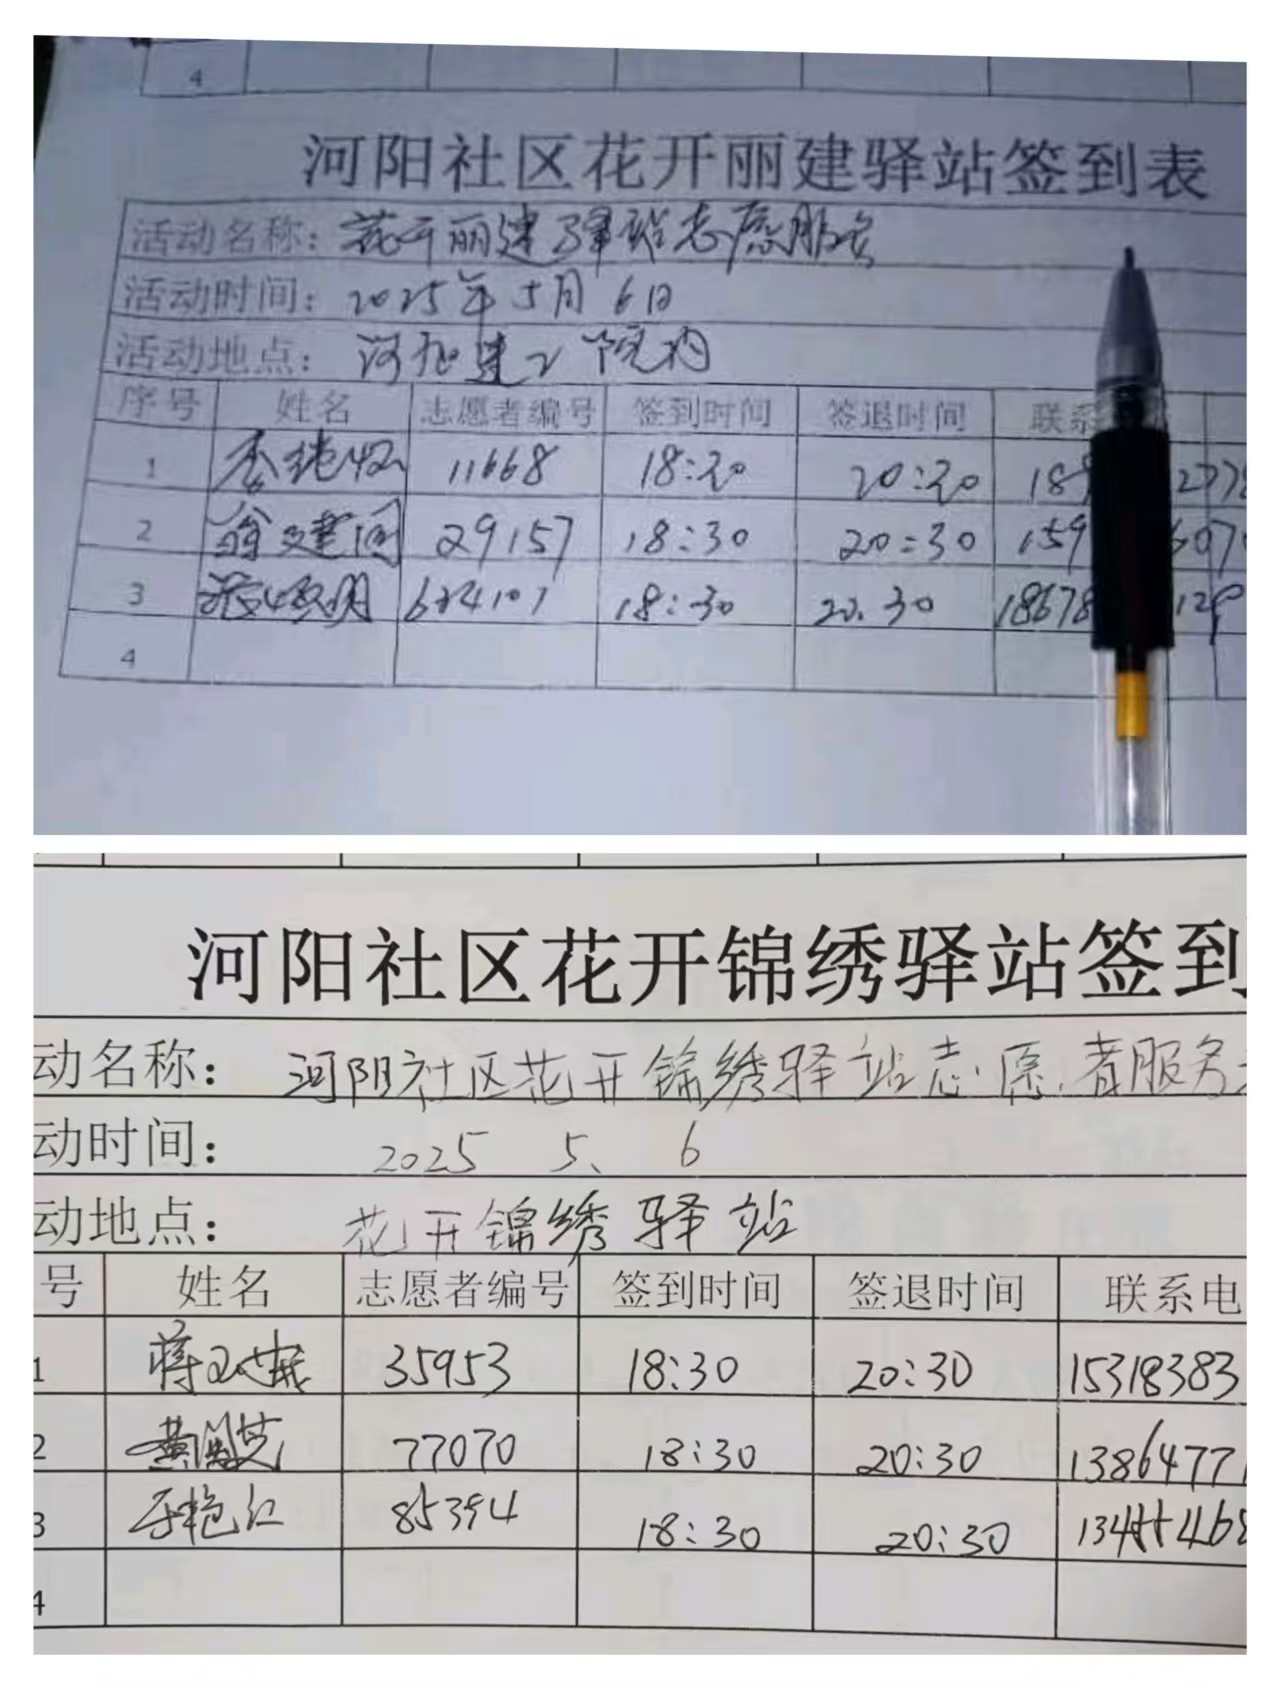 4
河阳社区花开丽建驿站签到表
活动名称：花开丽建驿站志愿服务
活动时间：2025年5月6日
活动地点：河阳建工院内
序号 姓名 志愿者编号 签到时间 签退时间 联系
1 11668 18:30 20:30 189 2778
2 翁建国 29157 18:30 20:30 159 6070
3 18:30 20.30 18678 129
4
河阳社区花开锦绣驿站签到
动名称：河阳社区花开锦绣驿站志愿者服务
动时间：2025 5、6
动地点：花开锦绣驿站
号 姓名 志愿者编号 签到时间 签退时间 联系电
1 35953 18:30 20:30 15318383
2 77070 18:30 20:30 13864771
3 于艳红 85394 18:30 20:30
4